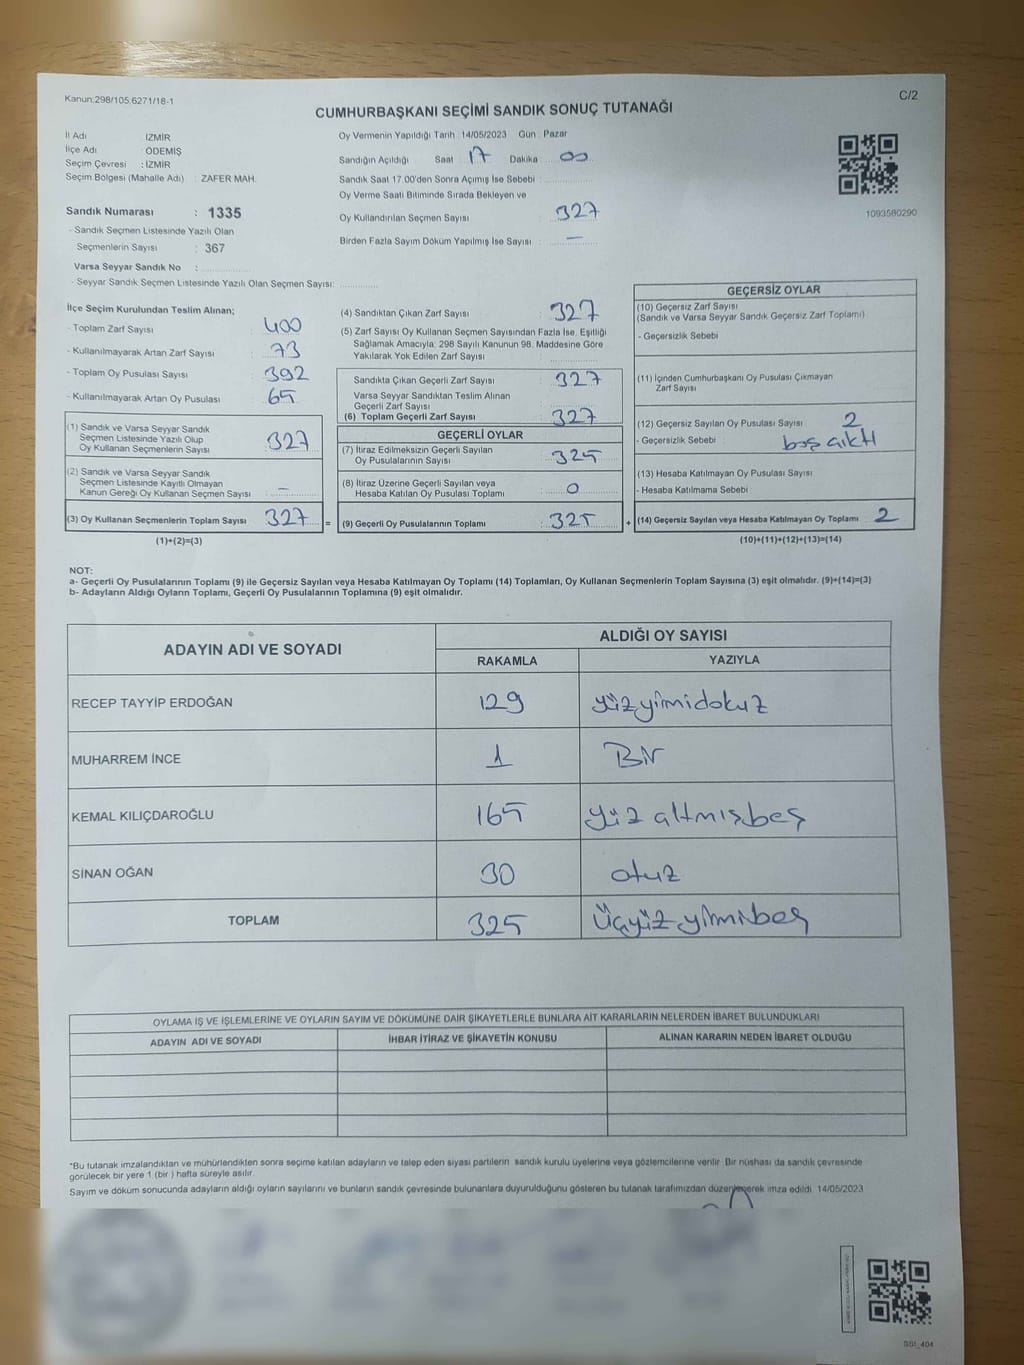 Kanun:298/105,6271/18-1
C/2
CUMHURBAŞKANI SEÇİMİ SANDIK SONUÇ TUTANAĞI
İl Adı İZMİR
İlçe Adı ÖDEMİŞ
Seçim Çevresi : İZMİR
Seçim Bölgesi (Mahalle Adı) : ZAFER MAH.
Sandık Numarası : 1335
- Sandık Seçmen Listesinde Yazılı Olan
Seçmenlerin Sayısı : 367
Varsa Seyyar Sandık No :
- Seyyar Sandık Seçmen Listesinde Yazılı Olan Seçmen Sayısı:
Oy Vermenin Yapıldığı Tarih : 14/05/2023 Gün : Pazar
Sandığın Açıldığı Saat : 17 Dakika : 00
Sandık Saat 17.00'den Sonra Açımış İse Sebebi :
Oy Verme Saati Bitiminde Sırada Bekleyen ve
Oy Kullandırılan Seçmen Sayısı : 327
Birden Fazla Sayım Döküm Yapılmış İse Sayısı : —
1093580290
İlçe Seçim Kurulundan Teslim Alınan;
- Toplam Zarf Sayısı : 400
- Kullanılmayarak Artan Zarf Sayısı : 73
- Toplam Oy Pusulası Sayısı : 392
- Kullanılmayarak Artan Oy Pusulası : 65
(1) Sandık ve Varsa Seyyar Sandık
Seçmen Listesinde Yazılı Olup
Oy Kullanan Seçmenlerin Sayısı : 327
(2) Sandık ve Varsa Seyyar Sandık
Seçmen Listesinde Kayıtlı Olmayan
Kanun Gereği Oy Kullanan Seçmen Sayısı : —
(3) Oy Kullanan Seçmenlerin Toplam Sayısı : 327
(1)+(2)=(3)
=
(4) Sandıktan Çıkan Zarf Sayısı : 327
(5) Zarf Sayısı Oy Kullanan Seçmen Sayısından Fazla İse, Eşitliği
Sağlamak Amacıyla; 298 Sayılı Kanunun 98. Maddesine Göre
Yakılarak Yok Edilen Zarf Sayısı :
Sandıkta Çıkan Geçerli Zarf Sayısı : 327
Varsa Seyyar Sandıktan Teslim Alınan
Geçerli Zarf Sayısı :
(6) Toplam Geçerli Zarf Sayısı : 327
GEÇERLİ OYLAR
(7) İtiraz Edilmeksizin Geçerli Sayılan
Oy Pusulalarının Sayısı : 325
(8) İtiraz Üzerine Geçerli Sayılan veya
Hesaba Katılan Oy Pusulası Toplamı : 0
(9) Geçerli Oy Pusulalarının Toplamı : 325
+
GEÇERSİZ OYLAR
(10) Geçersiz Zarf Sayısı
(Sandık ve Varsa Seyyar Sandık Geçersiz Zarf Toplamı)
- Geçersizlik Sebebi
(11) İçinden Cumhurbaşkanı Oy Pusulası Çıkmayan
Zarf Sayısı
(12) Geçersiz Sayılan Oy Pusulası Sayısı : 2
- Geçersizlik Sebebi : boş çıktı
(13) Hesaba Katılmayan Oy Pusulası Sayısı
- Hesaba Katılmama Sebebi
(14) Geçersiz Sayılan veya Hesaba Katılmayan Oy Toplamı : 2
(10)+(11)+(12)+(13)=(14)
NOT:
a- Geçerli Oy Pusulalarının Toplamı (9) ile Geçersiz Sayılan veya Hesaba Katılmayan Oy Toplamı (14) Toplamları, Oy Kullanan Seçmenlerin Toplam Sayısına (3) eşit olmalıdır. (9)+(14)=(3)
b- Adayların Aldığı Oyların Toplamı, Geçerli Oy Pusulalarının Toplamına (9) eşit olmalıdır.
ADAYIN ADI VE SOYADI
ALDIĞI OY SAYISI
RAKAMLA YAZIYLA
RECEP TAYYİP ERDOĞAN 129 yüzyimidokuz
MUHARREM İNCE 1 Bir
KEMAL KILIÇDAROĞLU 165 yüz altmışbeş
SİNAN OĞAN 30 otuz
TOPLAM 325 Üçyüz yimibeş
OYLAMA İŞ VE İŞLEMLERİNE VE OYLARIN SAYIM VE DÖKÜMÜNE DAİR ŞİKAYETLERLE BUNLARA AİT KARARLARIN NELERDEN İBARET BULUNDUKLARI
ADAYIN ADI VE SOYADI İHBAR İTİRAZ VE ŞİKAYETİN KONUSU ALINAN KARARIN NEDEN İBARET OLDUĞU
*Bu tutanak imzalandıktan ve mühürlendikten sonra seçime katılan adayların ve talep eden siyasi partilerin sandık kurulu üyelerine veya gözlemcilerine verilir. Bir nüshası da sandık çevresinde
görülecek bir yere 1 (bir) hafta süreyle asılır.
Sayım ve döküm sonucunda adayların aldığı oyların sayılarını ve bunların sandık çevresinde bulunanlara duyurulduğunu gösteren bu tutanak tarafımızdan düzenlenerek imza edildi. 14/05/2023